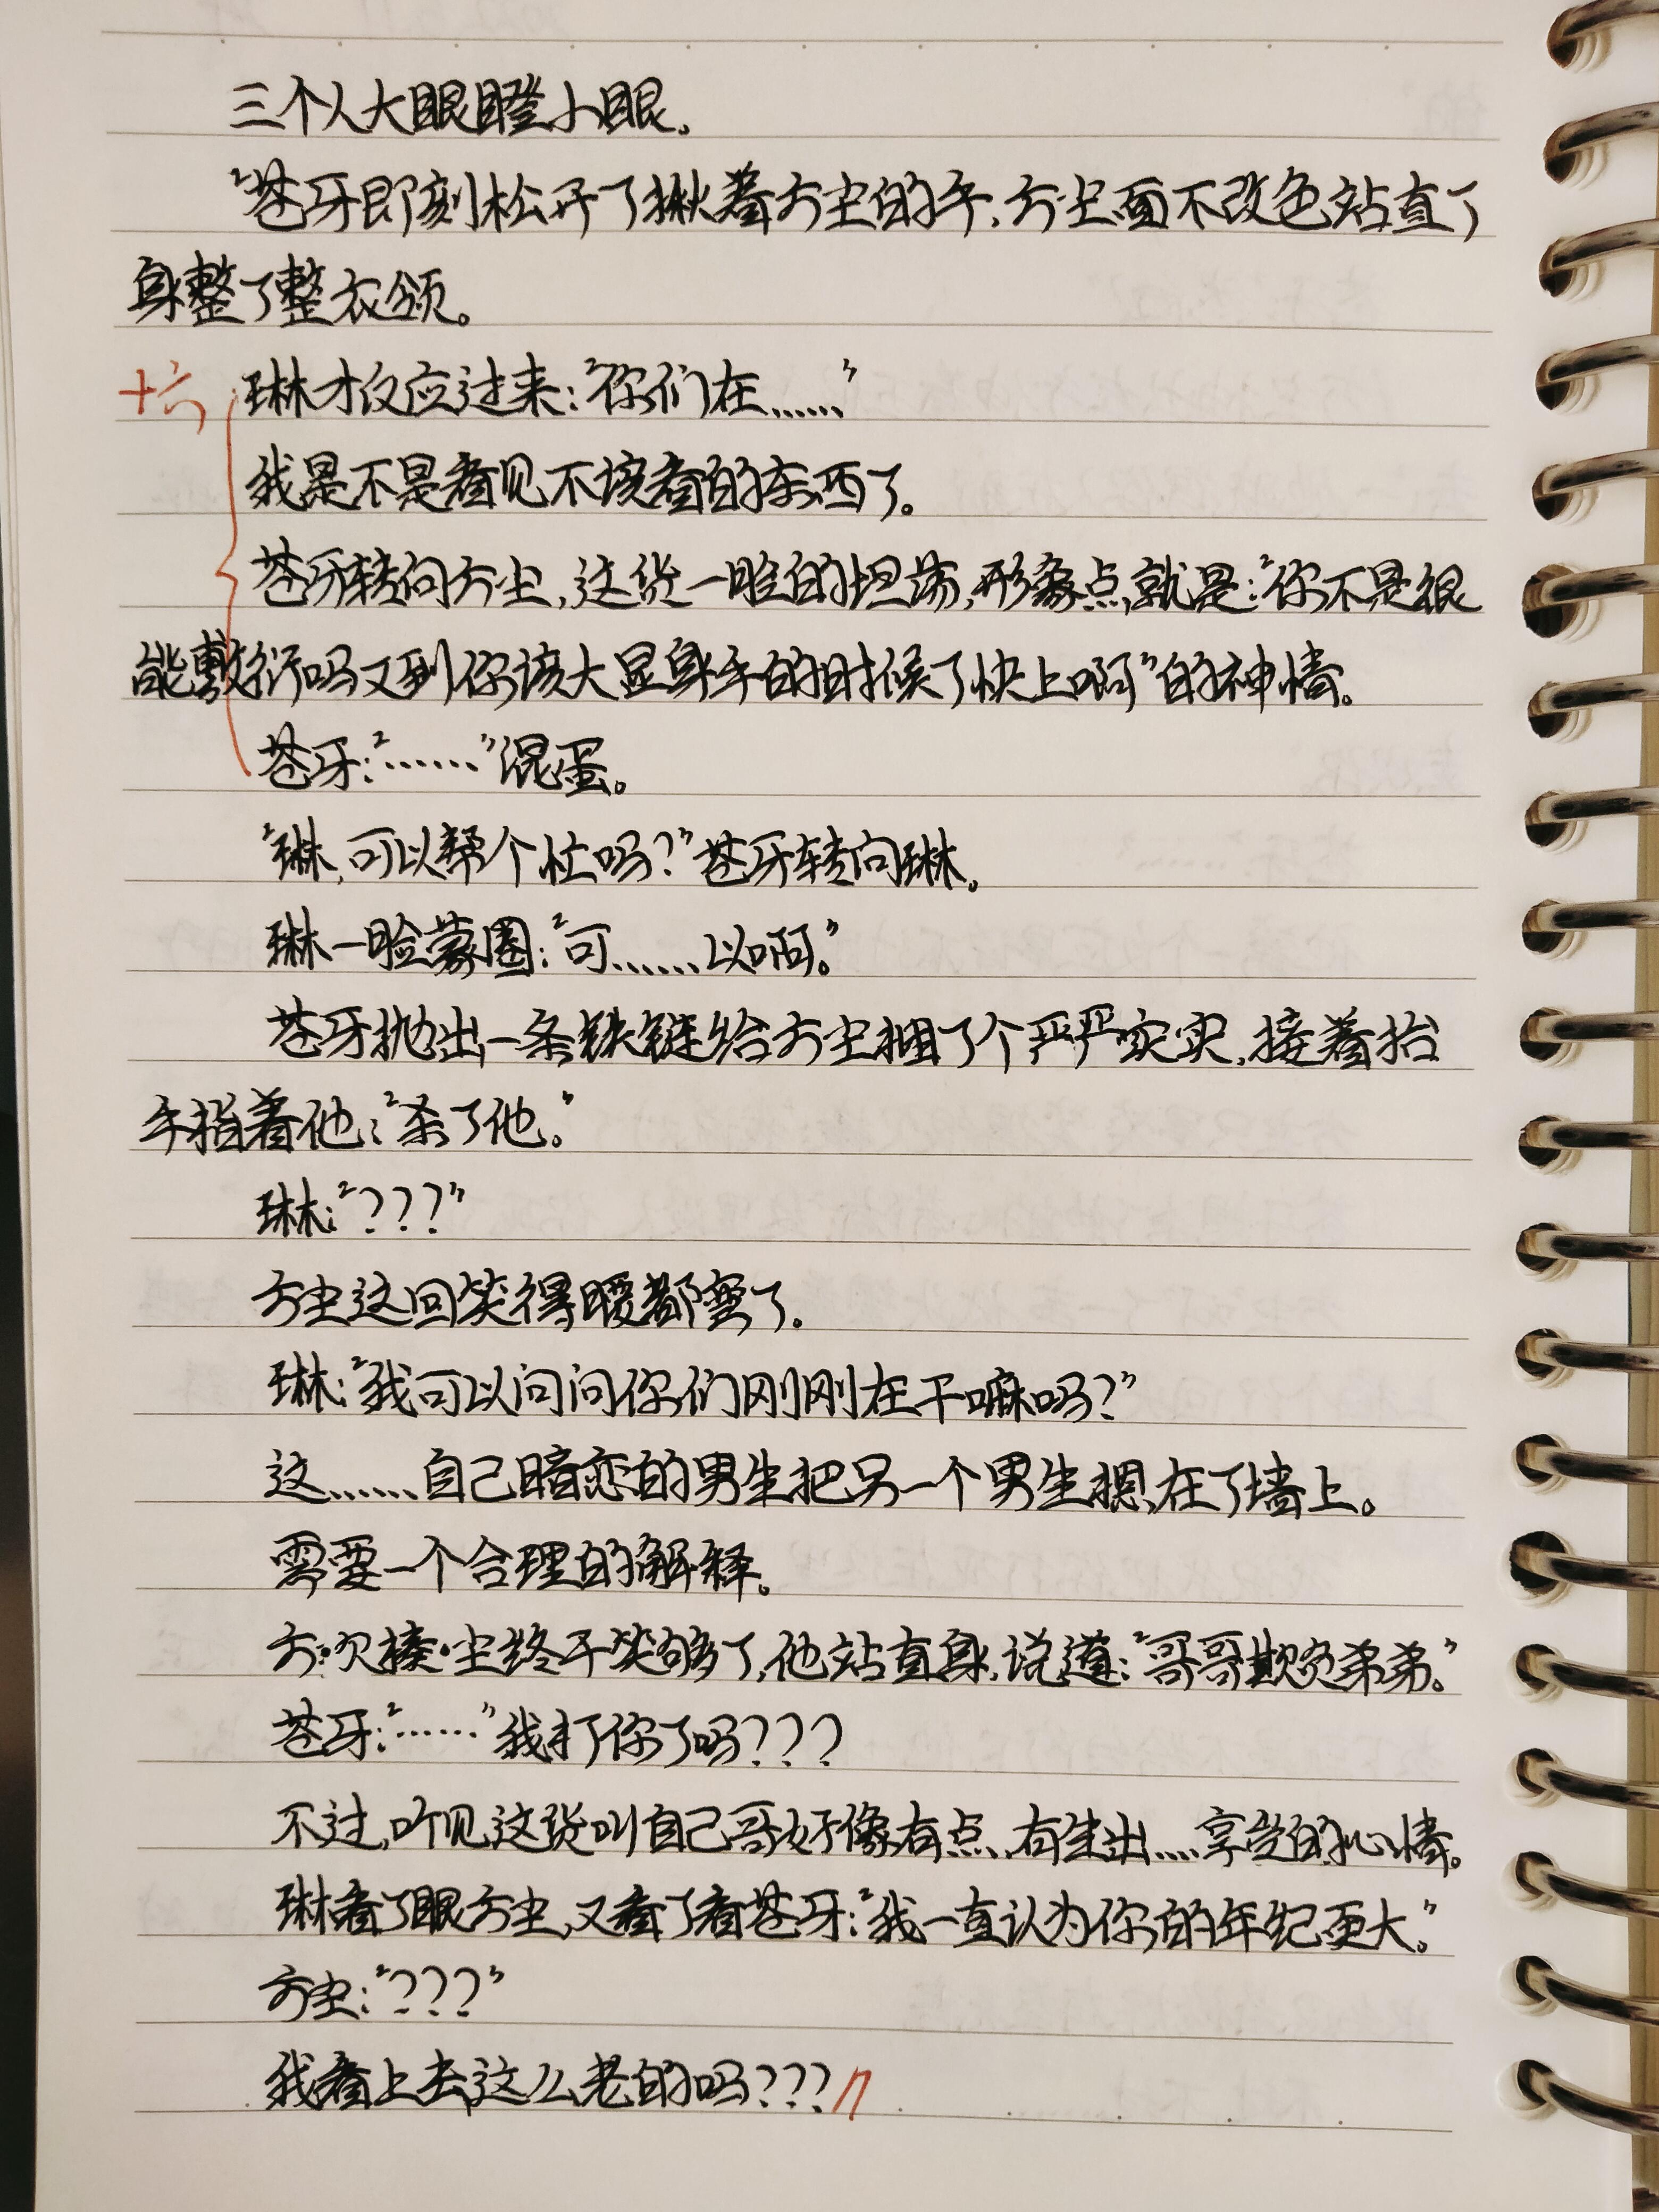 三个人大眼瞪小眼。
“苍牙即刻松开了揪着方尘的手，方尘面不改色站直了
身整了整衣领。
十六 琳才反应过来：“你们在……”
我是不是看见不该看的东西了。
苍牙转向方尘，这货一脸的坦荡，形象点就是：“你不是很
能敷衍吗又到你该大显身手的时候了快上啊”的神情。
苍牙：“……”混蛋。
“琳，可以帮个忙吗？”苍牙转向琳。
琳一脸蒙圈：“可……以啊。”
苍牙抛出一条铁链给方尘捆了个严严实实，接着抬
手指着他：“杀了他。”
琳：“？？？”
方尘这回笑得腰都弯了。
琳：“我可以问问你们刚刚在干嘛吗？”
这……自己暗恋的男生把另一个男生摁在了墙上。
需要一个合理的解释。
方·欠揍·尘终于笑够了，他站直身，说道：“哥哥欺负弟弟。”
苍牙：“……”我打你了吗？？？
不过，听见这货叫自己哥好像有点，有生出……享受的心情。
琳看了眼方尘，又看了看苍牙：“我一直认为你的年纪更大。”
方尘：“？？？”
我看上去这么老的吗？？？